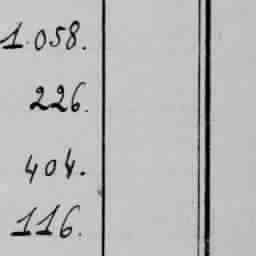 1.058.
226.
404.
116.